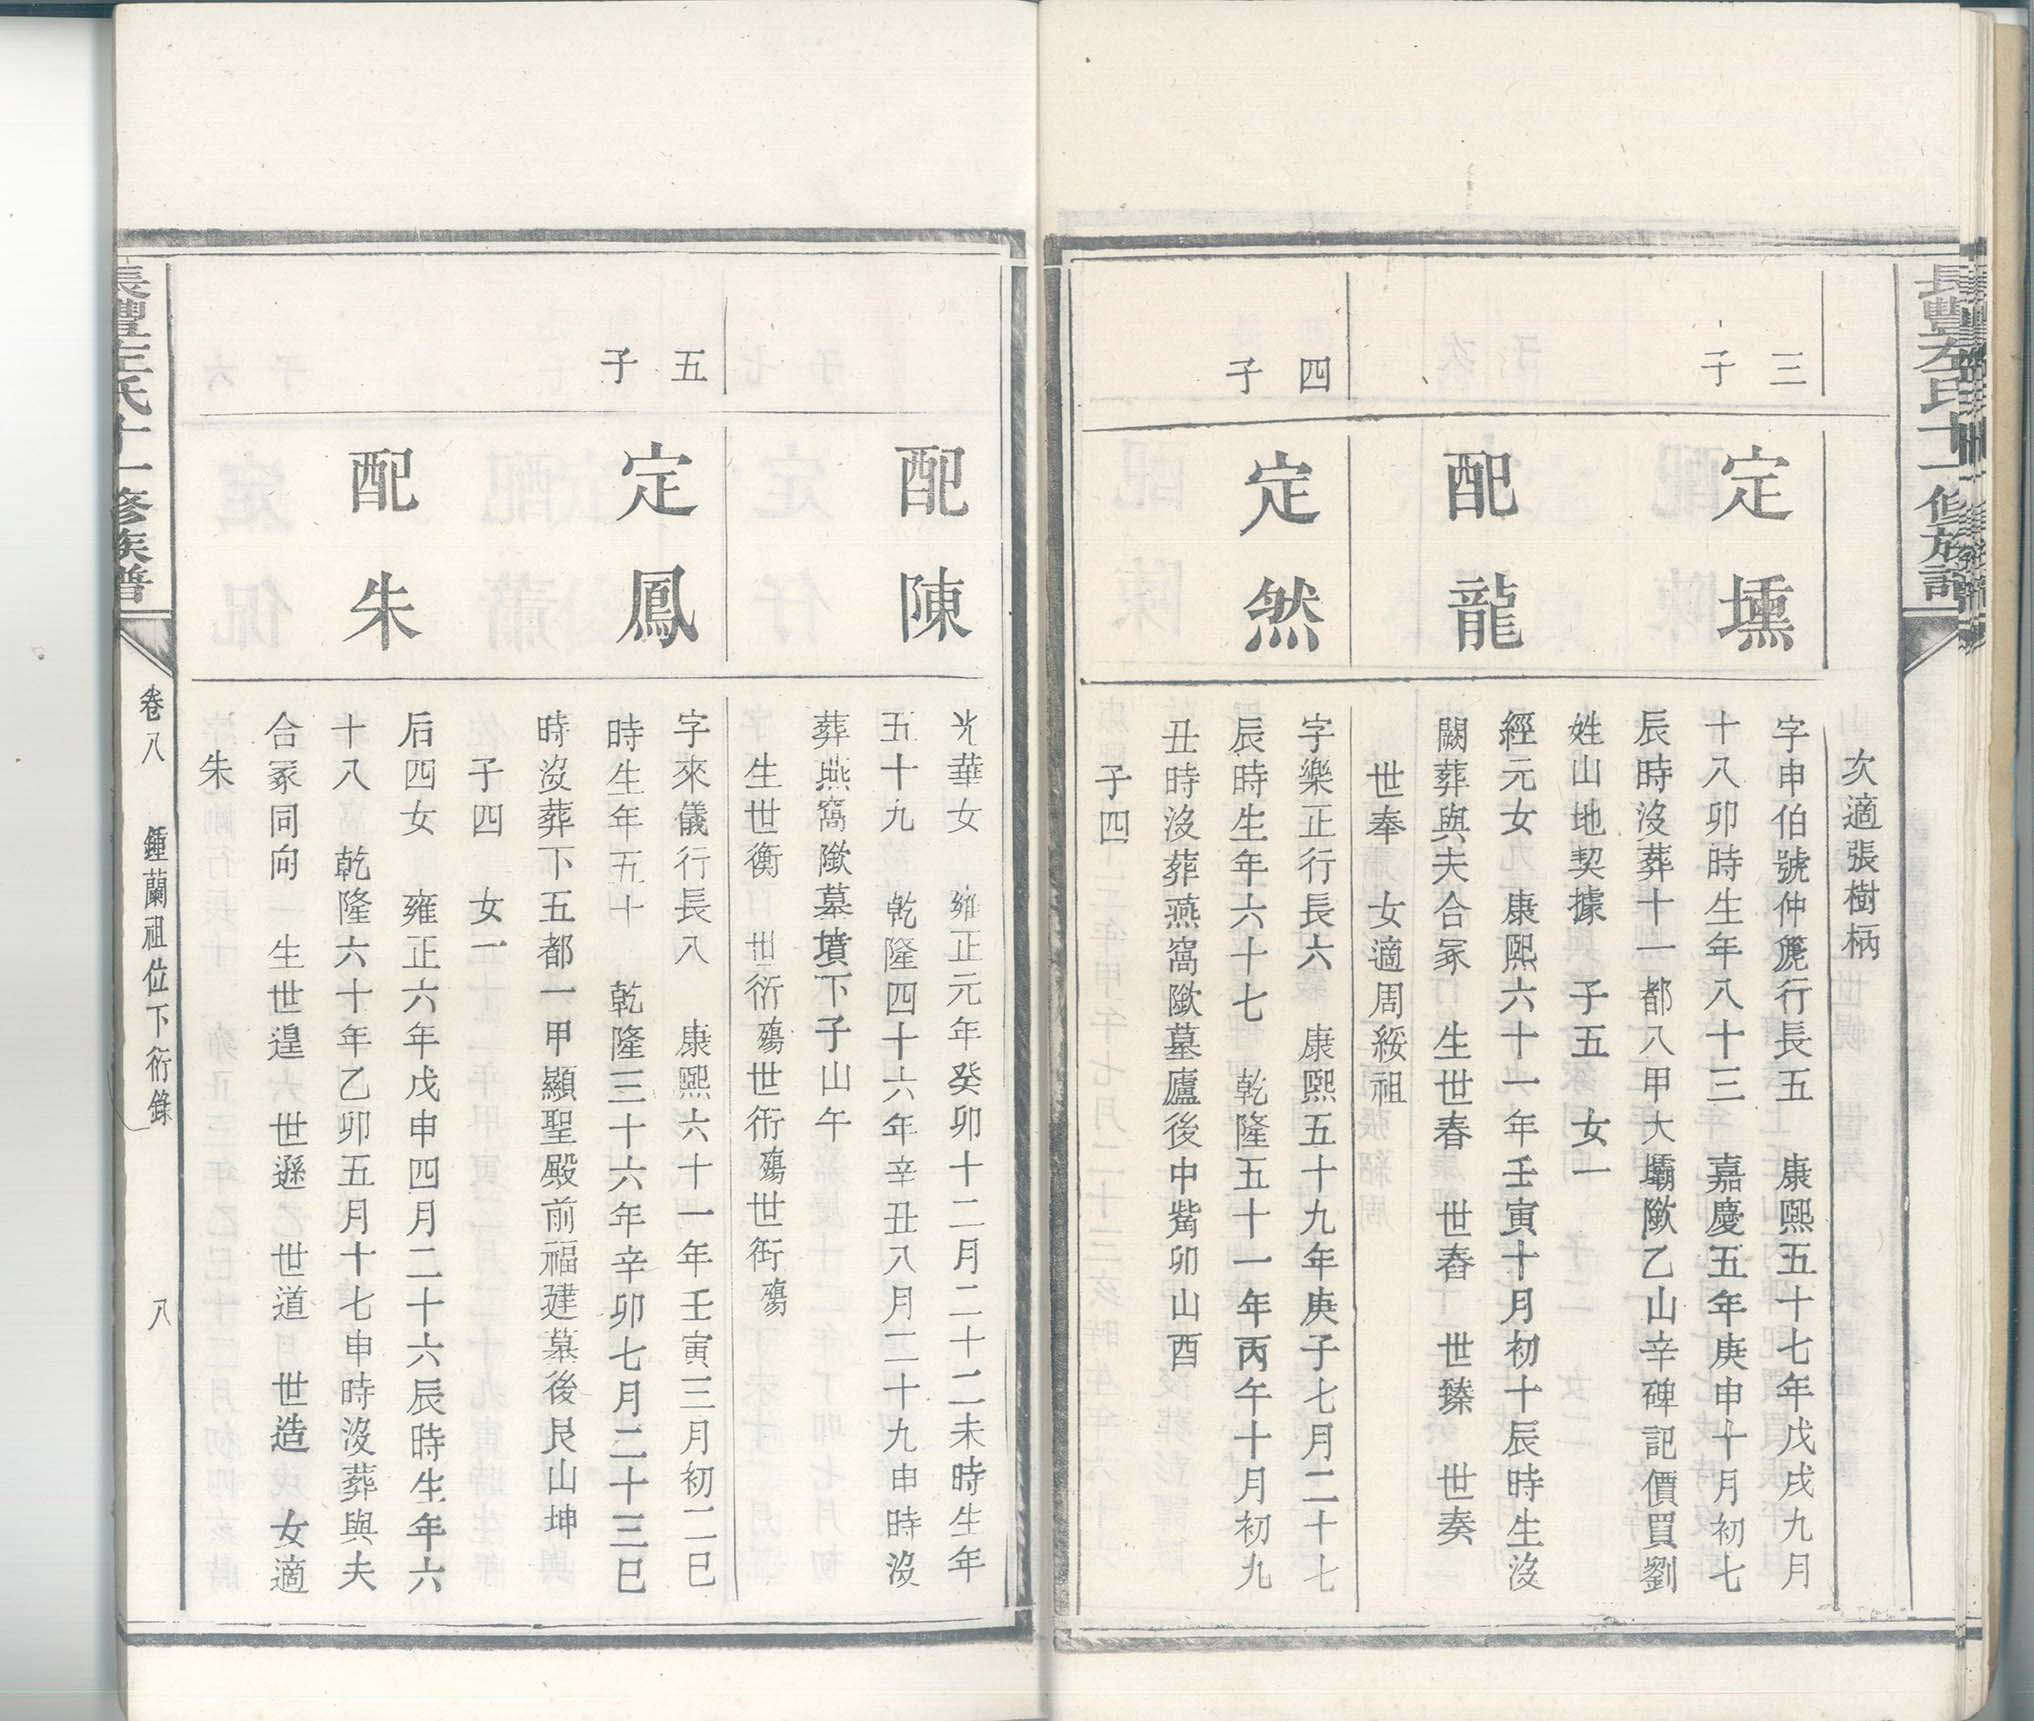 長豐左氏十一修族譜
次適張樹柄
三子
定壎
字申伯號仲篪行長五　康熙五十七年戊戌九月
十八卯時生年八十三　嘉慶五年庚申十月初七
辰時沒葬十一都八甲大壩歘乙山辛碑記價買劉
姓山地契據　子五　女一
配龍
經元女　康熙六十一年壬寅十月初十辰時生沒
闕葬與夫合冢　生世春　世舂　世臻　世奏
世奉　女適周綏祖
四子
定然
字樂正行長六　康熙五十九年庚子七月二十七
辰時生年六十七　乾隆五十一年丙午十月初九
丑時沒葬燕窩歘墓廬後中觜卯山酉
子四
配陳
光華女　雍正元年癸卯十二月二十二未時生年
五十九　乾隆四十六年辛丑八月二十九申時沒
葬燕窩歘墓墳下子山午
生世衡　世衍殤世衎殤世衙殤
五子
定鳳
字來儀行長八　康熙六十一年壬寅三月初二巳
時生年五十　乾隆三十六年辛卯七月二十三巳
時沒葬下五都一甲顯聖殿前福建墓後艮山坤
子四　女一
配朱
后四女　雍正六年戊申四月二十六辰時生年六
十八　乾隆六十年乙卯五月十七申時沒葬與夫
合冢同向　生世遑　世遜　世道　世造　女適
朱
長豐左氏十一修族譜
卷八　鍾蘭祖位下衍錄　八